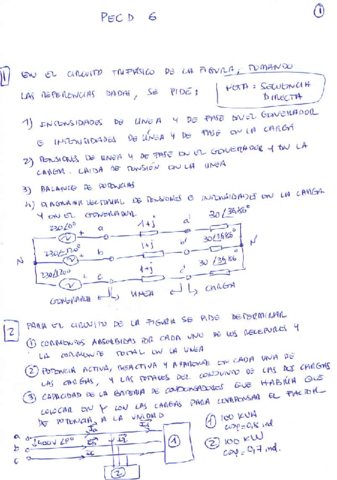 PECD 6
1
1 EN EL CIRCUITO TRIFÁSICO DE LA FIGURA, TOMANDO
LAS REFERENCIAS DADAS, SE PIDE:
NOTA: SECUENCIA DIRECTA
1) INTENSIDADES DE LÍNEA Y DE FASE EN EL GENERADOR
E INTENSIDADES DE LÍNEA Y DE FASE EN LA CARGA
2) TENSIONES DE LINEA Y DE FASE EN EL GENERADOR Y EN LA
CARGA. CAIDA DE TENSIÓN EN LA LINEA
3) BALANCE DE POTENCIAS
4) DIAGRAMA VECTORIAL DE TENSIONES E INTENSIDADES EN LA CARGA
Y EN EL GENERADOR
230/0° a 1+j a' 30/36'86°
N b 1+j b' 30/36'86° N'
c 1+j c' 30/36'86
GENERADOR LINEA CARGA
2 PARA EL CIRCUITO DE LA FIGURA SE PIDE DETERMINAR
1 CORRIENTES ABSORBIDAS POR CADA UNO DE LOS RECEPTORES Y
LA CORRIENTE TOTAL EN LA LINEA
2 POTENCIA ACTIVA, REACTIVA Y APARENTE EN CADA UNA DE
LAS CARGAS, Y LAS TOTALES DEL CONJUNTO DE LAS DOS CARGAS
3 CAPACIDAD DE LA BATERIA DE CONDENSADORES QUE HABRIA QUE
COLOCAR EN Y CON LAS CARGAS PARA COMPENSAR EL FACTOR
DE POTENCIA A LA UNIDAD
a
b
c
1
2
1 100 KVA
2 100 KW
cosφ=0,7 ind.